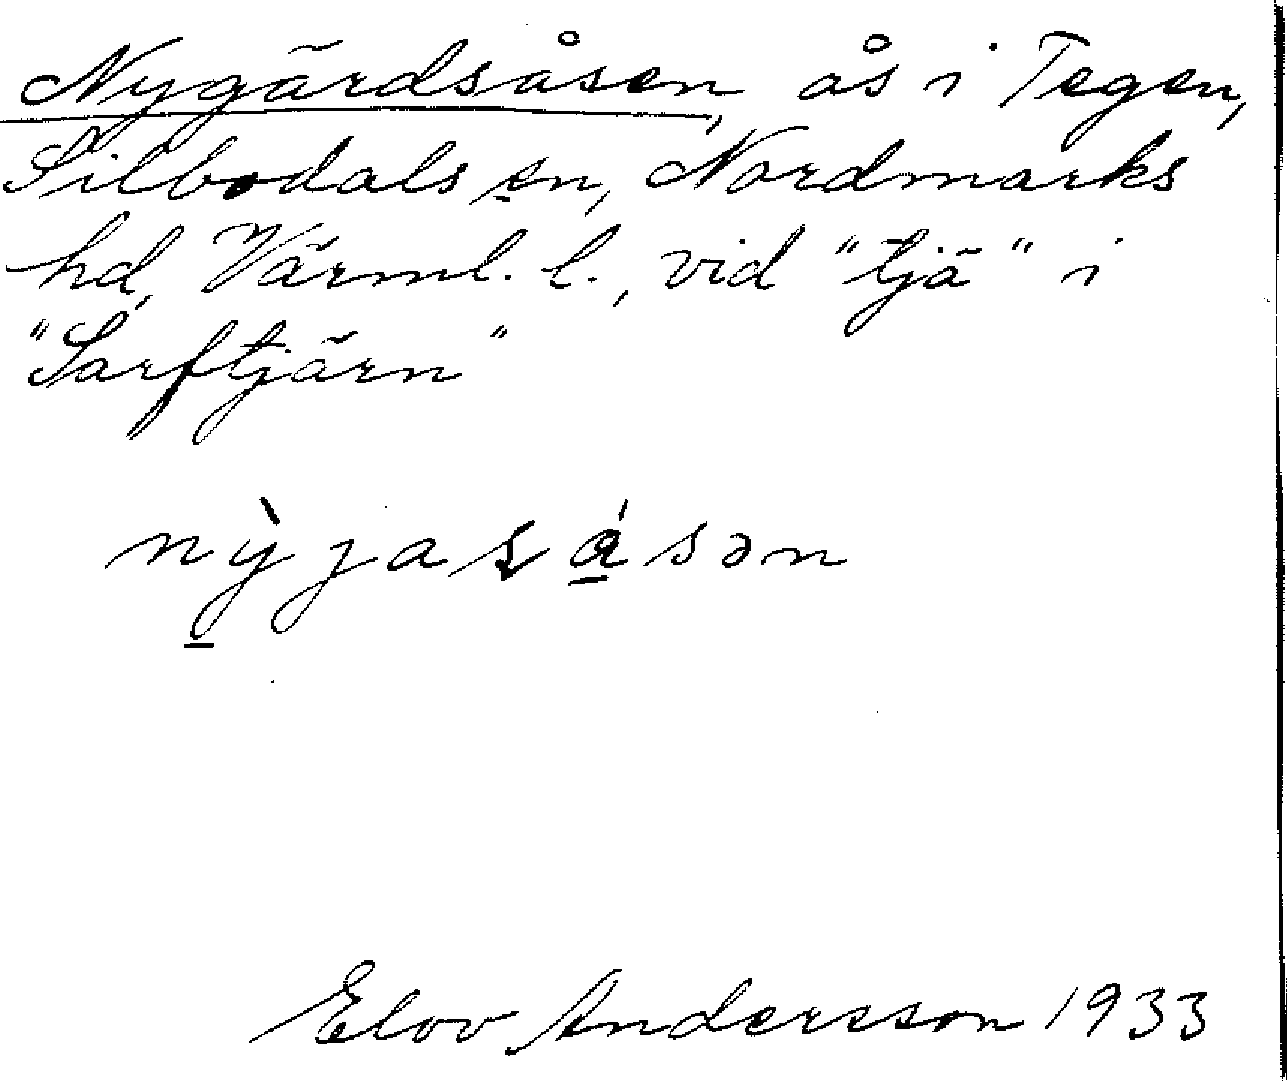 Nygårdsåsen, ås i Tegen,
Silbodals sn, Nordmarks
hd, Värml. l., vid "tjä" i
"Sarftjärn"
nỳjasá̱sən
Elov Andersson 1933